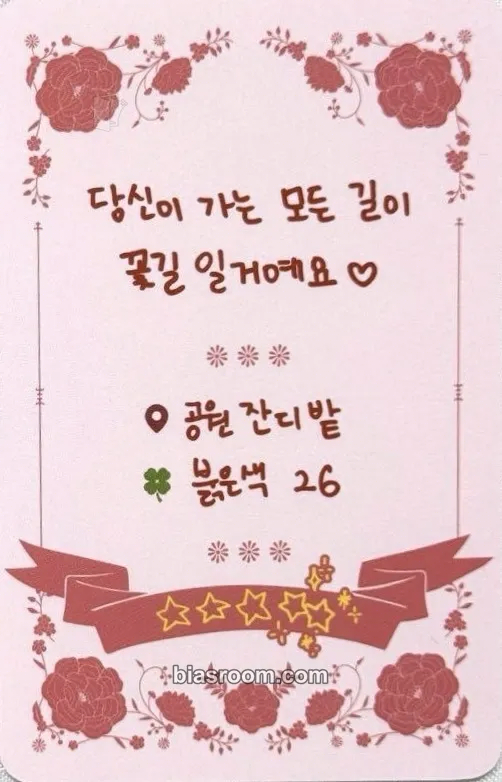 당신이 가는 모든 길이
꽃길 일거예요♡
공원 잔디밭
붉은색 26
biasroom.com